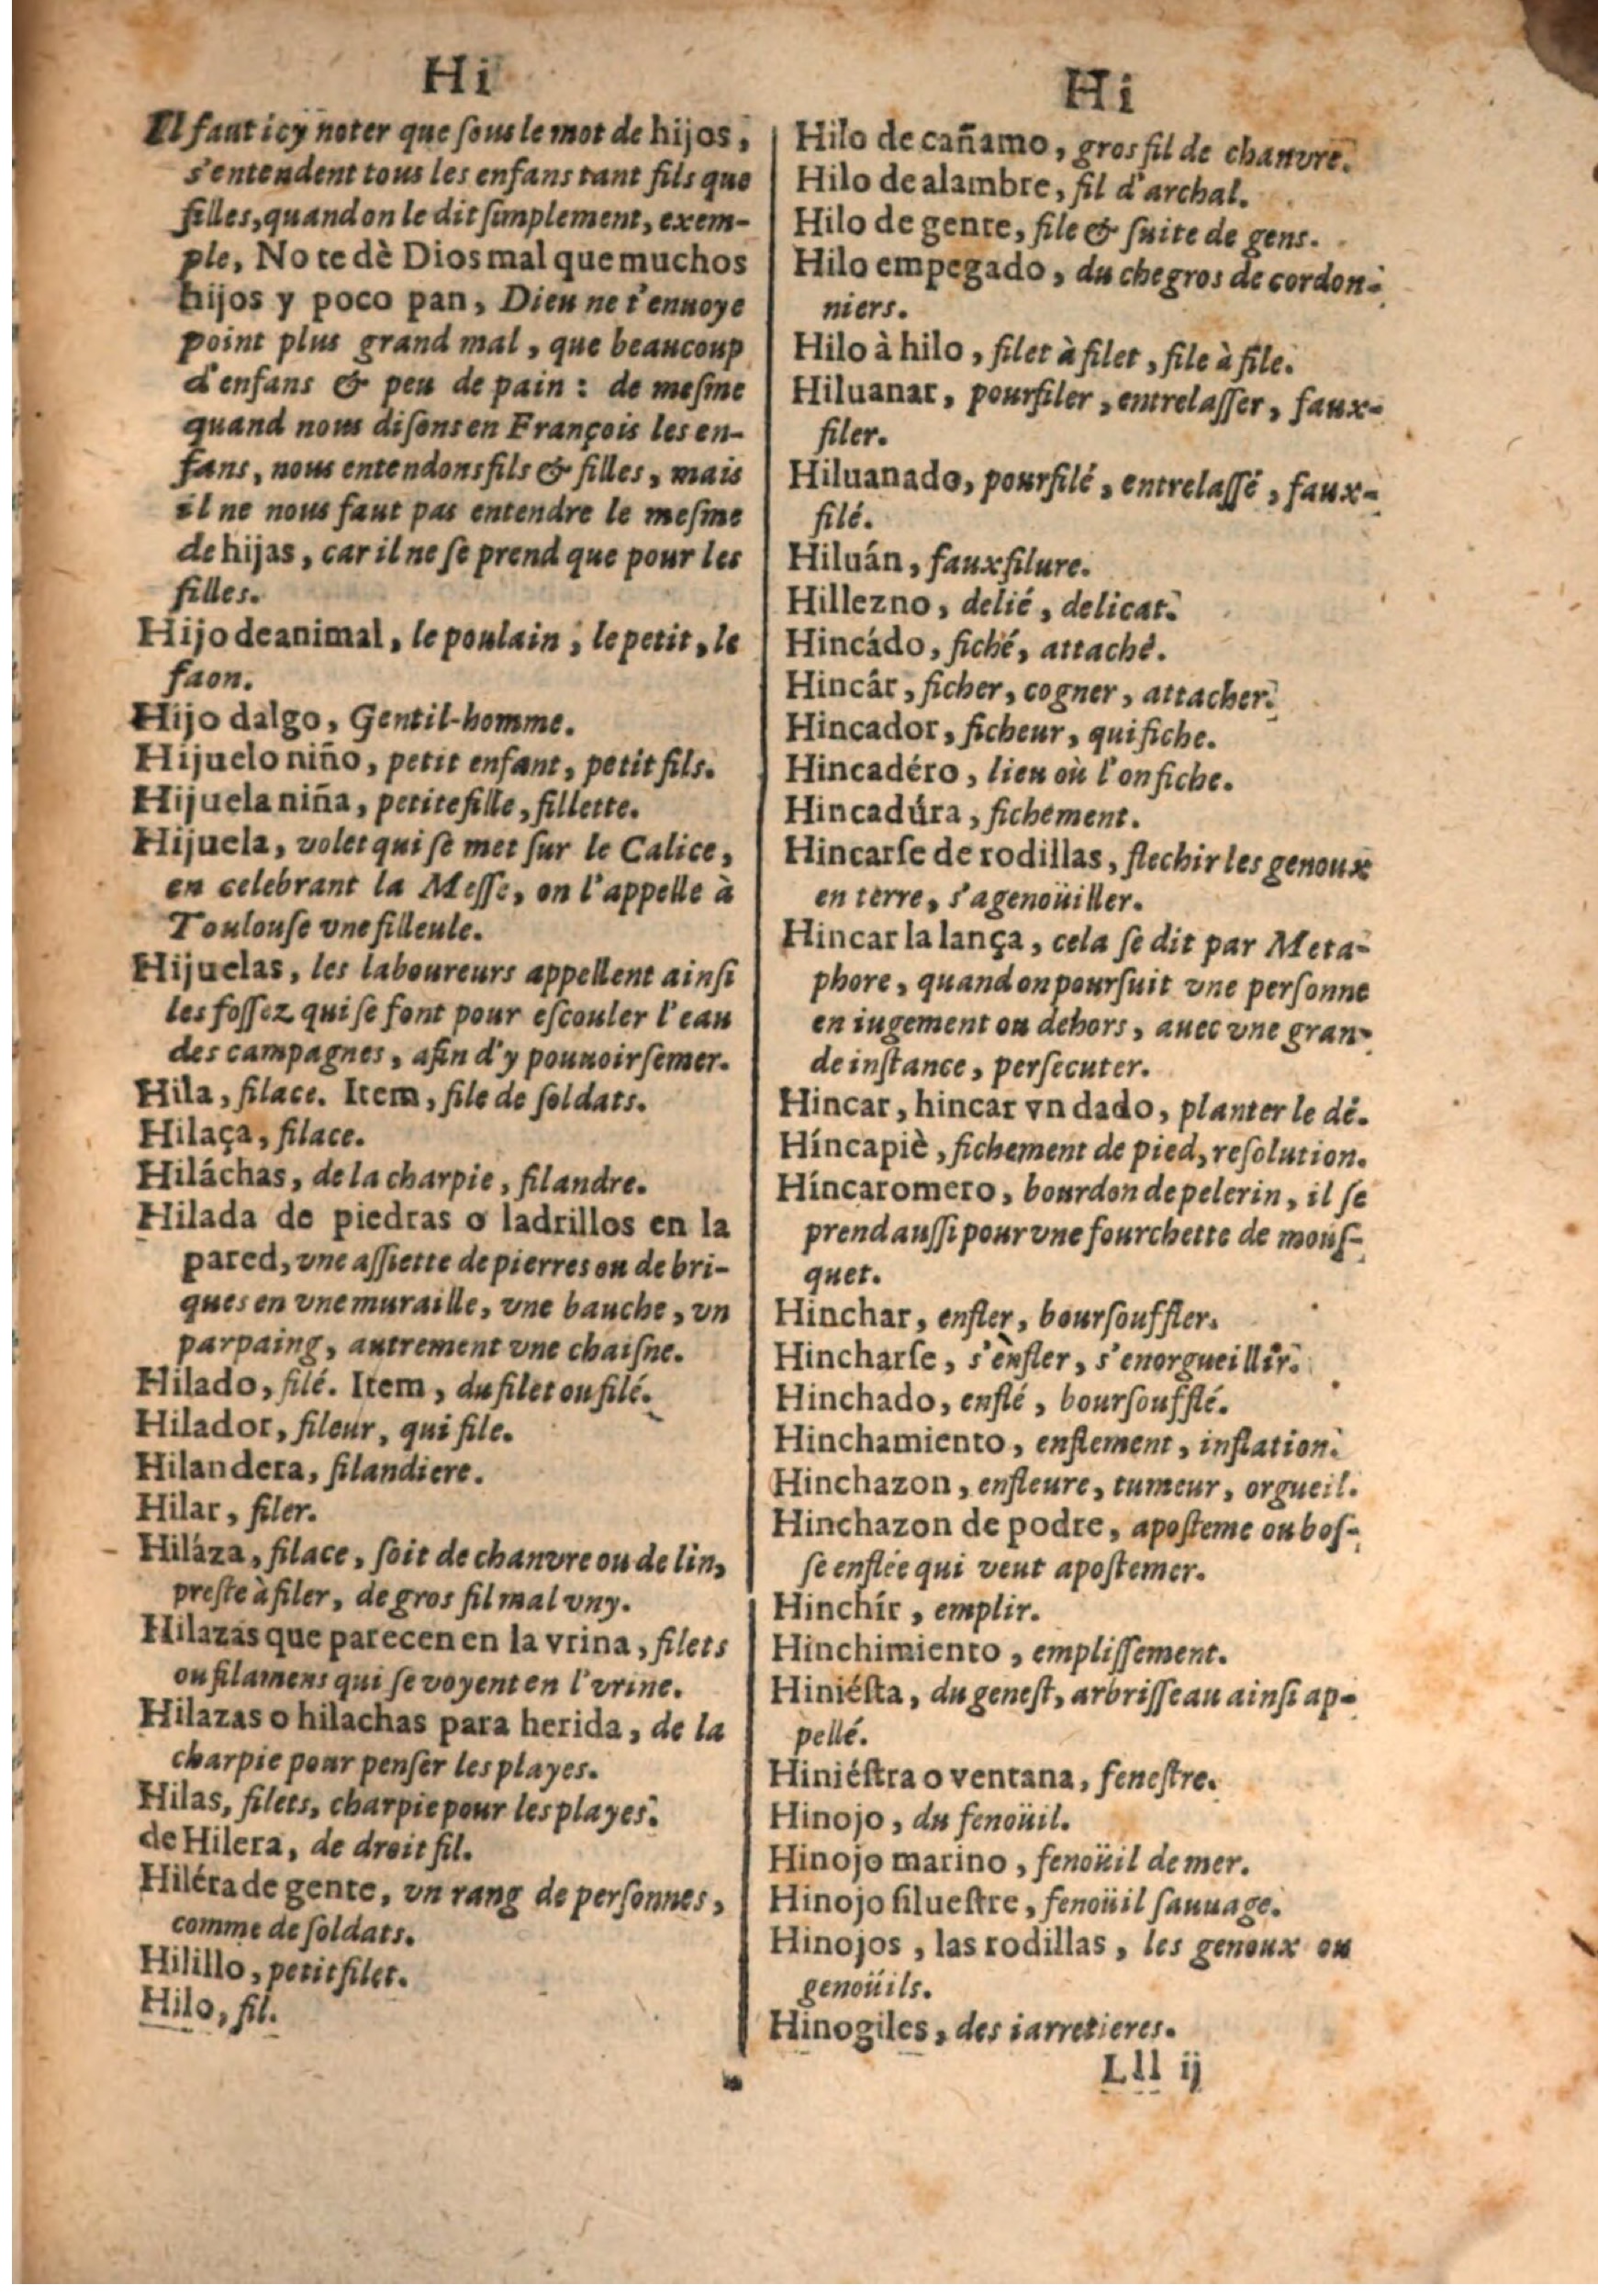 Hi
Il faut icy noter que ſous le mot de hijos,
s'entendent tous les enfans tant fils que
filles, quand on le dit ſimplement, exem-
ple, No te dè Dios mal que muchos
hijos y poco pan, Dieu ne t'enuoye
point plus grand mal, que beaucoup
d'enfans & peu de pain : de meſme
quand nous diſons en François les en-
fans, nous entendons fils & filles, mais
il ne nous faut pas entendre le meſme
de hijas, car il ne ſe prend que pour les
filles.
Hijo de animal, le poulain, le petit, le
faon.
Hijo dalgo, Gentil-homme.
Hijuelo niño, petit enfant, petit fils.
Hijuela niña, petite fille, fillette.
Hijuela, volet qui ſe met ſur le Calice,
en celebrant la Meſſe, on l'appelle à
Toulouſe vne filleule.
Hijuelas, les laboureurs appellent ainſi
les foſſez qui ſe font pour eſcouler l'eau
des campagnes, afin d'y pouuoir ſemer.
Hila, filace. Item, file de ſoldats.
Hilaça, filace.
Hiláchas, de la charpie, filandre.
Hilada de piedras o ladrillos en la
pared, vne aſſiette de pierres ou de bri-
ques en vne muraille, vne bauche, vn
parpaing, autrement vne chaiſne.
Hilado, filé. Item, du filet ou filé.
Hilador, fileur, qui file.
Hilandera, filandiere.
Hilar, filer.
Hiláza, filace, ſoit de chanvre ou de lin,
preſte à filer, de gros fil mal vny.
Hilazas que parecen en la vrina, filets
ou filamens qui ſe voyent en l'vrine.
Hilazas o hilachas para herida, de la
charpie pour penſer les playes.
Hilas, filets, charpie pour les playes.
de Hilera, de droit fil.
Hiléra de gente, vn rang de perſonnes,
comme de ſoldats.
Hilillo, petit filet.
Hilo, fil.
Hi
Hilo de cañamo, gros fil de chanvre.
Hilo de alambre, fil d'archal.
Hilo de gente, file & ſuite de gens.
Hilo empegado, du chegros de cordon-
niers.
Hilo à hilo, filet à filet, file à file.
Hiluanar, pourfiler, entrelaſſer, faux-
filer.
Hiluanado, pourfilé, entrelaſſé, faux-
filé.
Hiluán, fauxfilure.
Hillezno, delié, delicat.
Hincádo, fiché, attaché.
Hincár, ficher, cogner, attacher.
Hincador, ficheur, qui fiche.
Hincadéro, lieu où l'on fiche.
Hincadúra, fichement.
Hincarſe de rodillas, flechir les genoux
en terre, s'agenoüiller.
Hincar la lança, cela ſe dit par Meta-
phore, quand on pourſuit vne perſonne
en iugement ou dehors, auec vne gran-
de inſtance, perſecuter.
Hincar, hincar vn dado, planter le dé.
Híncapiè, fichement de pied, reſolution.
Híncaromero, bourdon de pelerin, il ſe
prend auſſi pour vne fourchette de mouſ-
quet.
Hinchar, enfler, bourſouffler.
Hincharſe, s'enfler, s'enorgueillir.
Hinchado, enflé, bourſoufflé.
Hinchamiento, enflement, inflation.
Hinchazon, enfleure, tumeur, orgueil.
Hinchazon de podre, apoſteme ou boſ-
ſe enflée qui veut apoſtemer.
Hinchír, emplir.
Hinchimiento, empliſſement.
Hiniéſta, du geneſt, arbriſſeau ainſi ap-
pellé.
Hiniéſtra o ventana, feneſtre.
Hinojo, du fenoüil.
Hinojo marino, fenoüil de mer.
Hinojo ſilueſtre, fenoüil ſauuage.
Hinojos, las rodillas, les genoux ou
genoüils.
Hinogiles, des iarretieres.
Lll ij